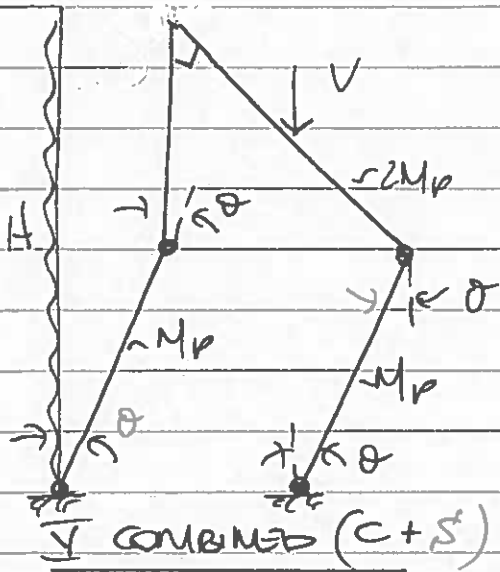 V
2Mp
θ
H
θ
Mp
Mp
θ
θ
V COMBINED (C + S)